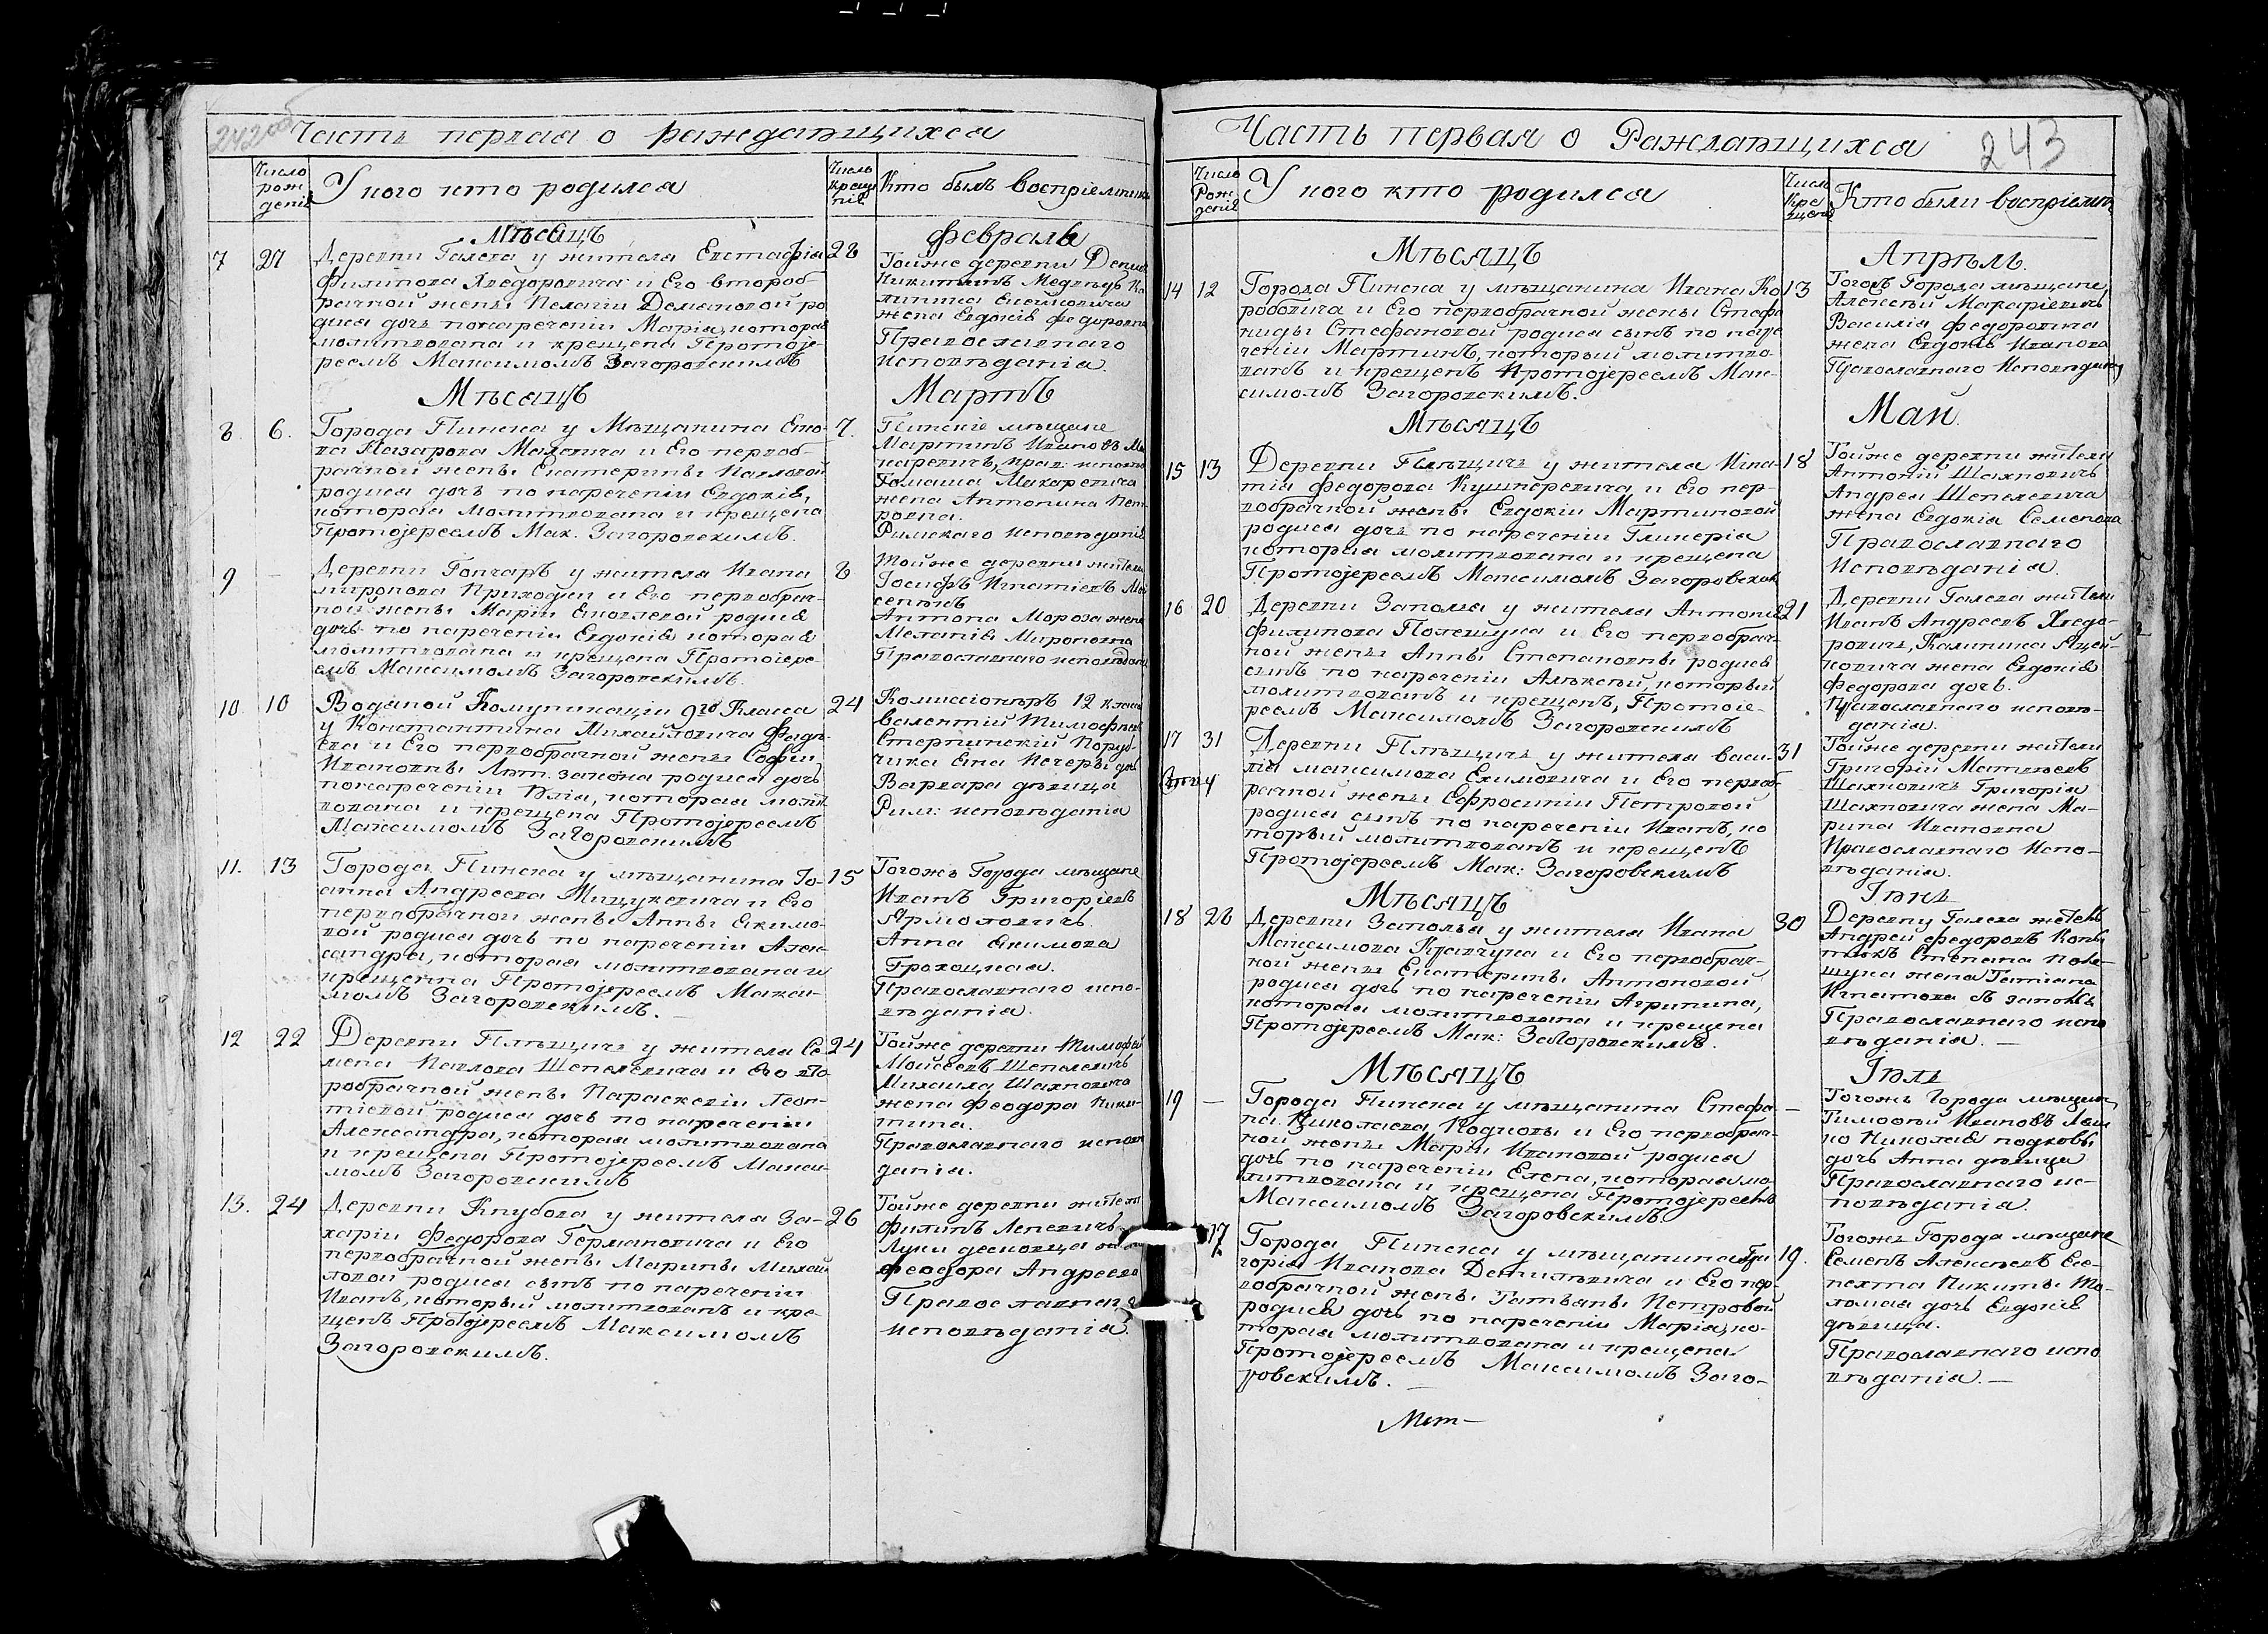 242об
Часть первая о раждающихся
Число рож денія
У кого кто родился
Число креще нія
Кто былъ воспріемник
Мѣсяцъ
Февраль
7
27
Деревни Галева у жителя Евстафія
Филипова Хведоровича и Его второб-
рачной жены Пелагіи Демяновой ро
дися дочь понаречении Марія, которая
молитвована и крещена Протоіе-
реемъ Максимомъ Загоровскимъ
28
Тойже деревни Денис
Никитинъ
жена Евдокія Федоровна
Православнаго
исповѣданія.
Мѣсяцъ
Мартъ
8.
6.
Города Пинска у Мѣщанина
Назарова и Его первоб-
рачной жены Екатерины Павловой
родися дочь по наречении Евдокія,
которая молитвована и крещена
Протоіереемъ Мак. Загоровскимъ.
7.
Пинскіе мѣщане
Мартинъ Ивановъ Ма
каревичъ, прав: испов
Томаша Макаревича
жена Антонина Пет-
ровна.
Римскаго исповѣданія
9
-
Деревни Гончаръ у жителя Ивана
Миронова Приходки и Его первобрач-
ной жены Маріи Яковлевой родися
дочь по наречении Евдокія которая
молитвована и крещена Протоіере-
емъ Максимомъ Загоровскимъ.
8
Тойже деревни жители
Іосифъ Игнатіевъ Мои
сеенко
Антона Мороза жена
Меланія Мироновна
Православнаго исповѣдан
10
10
Водяной Комуникаціи 9го Класса
у Константина Михайловича Фадѣ-
ева и Его первобрачной жены Софіи
Ивановны Лют. закона родися дочь
понаречении Юлія, которая молит
вована и крещена Протоіереемъ
Максимомъ Загоровскимъ
24
Комиссіонеръ 12 класа
валентій Тимофѣев
Стерпинскій Поруд-
чика Яна Печеры доч
Варвара дѣвица
Рим: исповѣданія
11.
13
Города Пинска у мѣщанина Іо-
анна Андреева Мицукевича и Его
первобрачной жены Анны Якимо-
вой родися дочь по наречении Алек-
сандра, которая молитвована и
крещенна Протоіереемъ Макси-
момъ Загоровскимъ.
15
Тогожъ Города мѣщане
Иванъ Григоріевъ
Ярмоловичъ
Анна Якимова
Грохоцкая.
Православнаго испо-
вѣданія.
12
22
Деревни Плѣщичъ у жителя Се
мена Павлова Шепелевича и Его вто
рообрачной жены Параскевіи Леон-
тіевой родися дочь по наречении
Александра, которая молитвована
и крещена Протоіереемъ Макси-
момъ Загоровскимъ
24
Тойже деревни Тимофе
Мойсеевъ Шепелевичъ
Михаила Шахновича
жена Феодора Ники-
тина.
Православнаго исповѣ
данія.
13.
24
Деревни Кнубова у жителя За-
харіи Федорова Германовича и Его
первобрачной жены Марины Михай
ловой родися сынъ по наречении
Иванъ, который молитвованъ и кре-
щенъ Протоіереемъ Максимомъ
Загоровскимъ.
26
Тойже деревни жители
Филипъ Лепевичъ
Луки
Феодора Андреева
Православнаго
исповѣданія.
Часть первая о Раждающихся
243
Число Рож- денія
У кого кто родился
Число Кре щенія
Кто были воспріемн
Мѣсяцъ
Апрѣль.
14
12
Города Пинска у мѣщанина Ивана Ко
робовича и Его первобрачной жены Стефа
ниды Стефановой родися сынъ по наре
чении Мартинъ, который молитво-
ванъ и крещенъ Протоіереемъ Мак-
симомъ Загоровскимъ.
13
Тогожъ Города мѣщане
Алексѣй Макаріевичъ
Василія Федоровича
жена Евдокія Иванова
Православнаго Исповѣданія
Мѣсяцъ
Май.
15
13
Деревни Плѣщичъ у жителя Игна-
тія Федорова Кушнеревича и Его пер-
вобрачной жены Евдокіи Мартиновой
родися дочь по наречении Гликерія
которая молитвована и крещена
Протоіереемъ Максимомъ Загоровским
18
Тойже деревни жители
Антоній Шахновичъ
Андрея Шепелевича
жена Евдокія Семенова
Православнаго
Исповѣданія.
16
20
Деревни Заполья у жителя Антонія
Филипова Полешука и Его первобрач-
ной жены Анны Степановны родися
сынъ по наречении Алѣксѣй, который
молитвованъ и крещенъ, Протоіе-
реемъ Максимомъ Загоровскимъ
21
Деревни Галева жители
Иванъ Андреевъ Хведо-
ровичъ, Калиника Яцей-
ковича жена Евдокія
Федорова дочь.
Православнаго исповѣ-
данія.
17
31
Деревни Плѣщичъ у жителя Васи-
лія Максимова Екимовича и Его первоб-
рачной жены Ефросиніи Петровой
родися сынъ по наречении Иванъ, ко
торый молитвованъ и крещенъ
Протоіереемъ Мак: Загоровскимъ
31
Тойже деревни жители
Григорій Матвѣевъ
Шахновичъ Григорія
Шахновича жена Ма-
рина Ивановна
Православнаго Испо-
вѣданія.
Мѣсяцъ
Іюнь
18
28
Деревни Заполья у жителя Ивана
Максимова Кравчука и Его первобрач-
ной жены Екатерины Антоновой
родися дочь по наречении Агрипина,
которая молитвована и крещена
Протоіереемъ Мак: Загоровскимъ.
30
Деревни Галева житель
Андрей Федоровъ
Степана Поле-
шука жена Татіана
Игнатова съ заполья
Православнаго испо
вѣданія. -
Мѣсяцъ
Іюль
19
-
Города Пинска у мѣщанина Стефа-
на Николаева Подковы и Его первобрач-
ной жены Маріи Ивановой родися
дочь по наречении Елена, которая мо-
литвована и крещена Протоіереемъ
Максимомъ Загоровскимъ.
-
Тогожъ Города мѣщане
Тимофей Ивановъ
Николая подковы
дочь Анна дѣвица
Православнаго ис-
повѣданія.
17
Города Пинска у мѣщанина Гри
горія Иванова Данилевича и Его пер-
вобрачной жены Татьяны Петровой
родися дочь по наречении Марія, ко-
торая молитвована и крещена
Протоіереемъ Максимомъ Заго-
ровскимъ. -
19.
Тогожъ Города мѣщане
Семенъ Алексѣевъ
Никиты
дочь Евдокія
дѣвица.
Православнаго испо
вѣданія. -